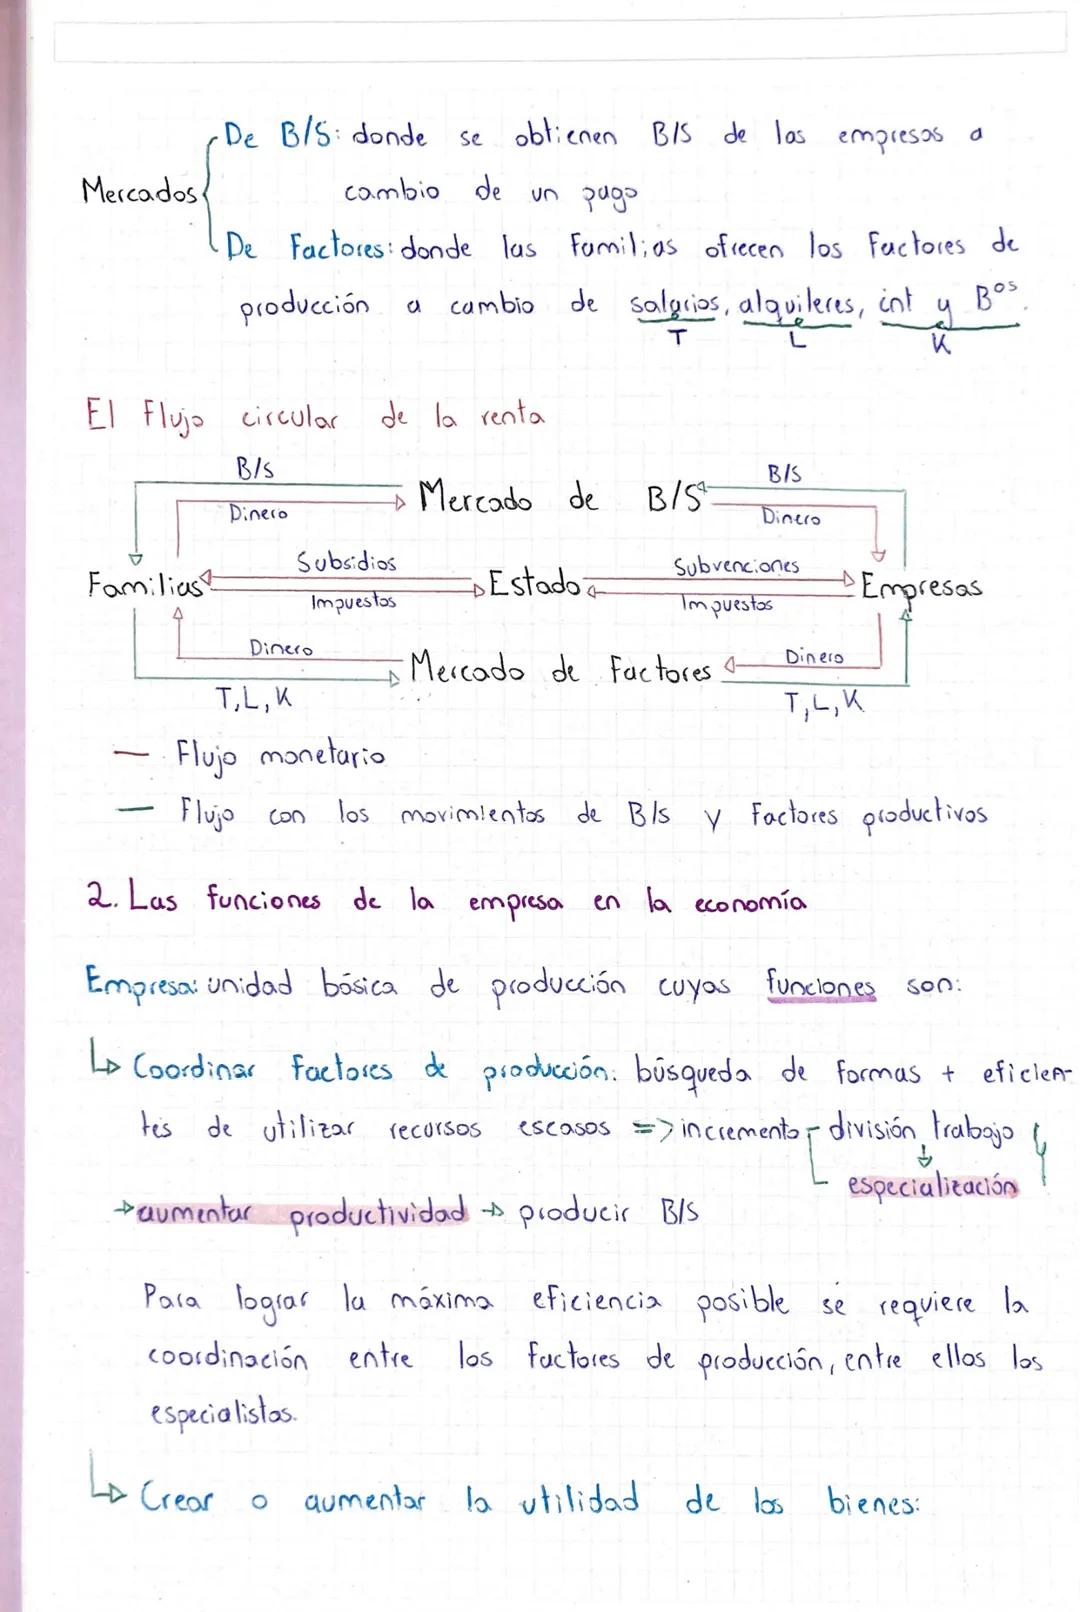 De B/S: donde se obtienen B/S de las empresas a
Mercados
cambio de un pago
De Factores: donde las familias ofrecen los factores de
producción a cambio de salarios, alquileres, int y Bᵒˢ.
T L K
El flujo circular de la renta
B/S B/S
Mercado de B/S
Dinero Dinero
Subsidios Subvenciones
Familias Estado Empresas
Impuestos Impuestos
Dinero Dinero
Mercado de Factores
T, L, K T, L, K
— Flujo monetario
— Flujo con los movimientos de B/S y Factores productivos
2. Las funciones de la empresa en la economía
Empresa: unidad básica de producción cuyas funciones son:
↳ Coordinar factores de producción: búsqueda de formas + eficien-
tes de utilizar recursos escasos => incremento división trabajo y
↓
especialización
→ aumentar productividad → producir B/S
Para lograr la máxima eficiencia posible se requiere la
coordinación entre los factores de producción, entre ellos los
especialistas.
↳ Crear o aumentar la utilidad de los bienes: